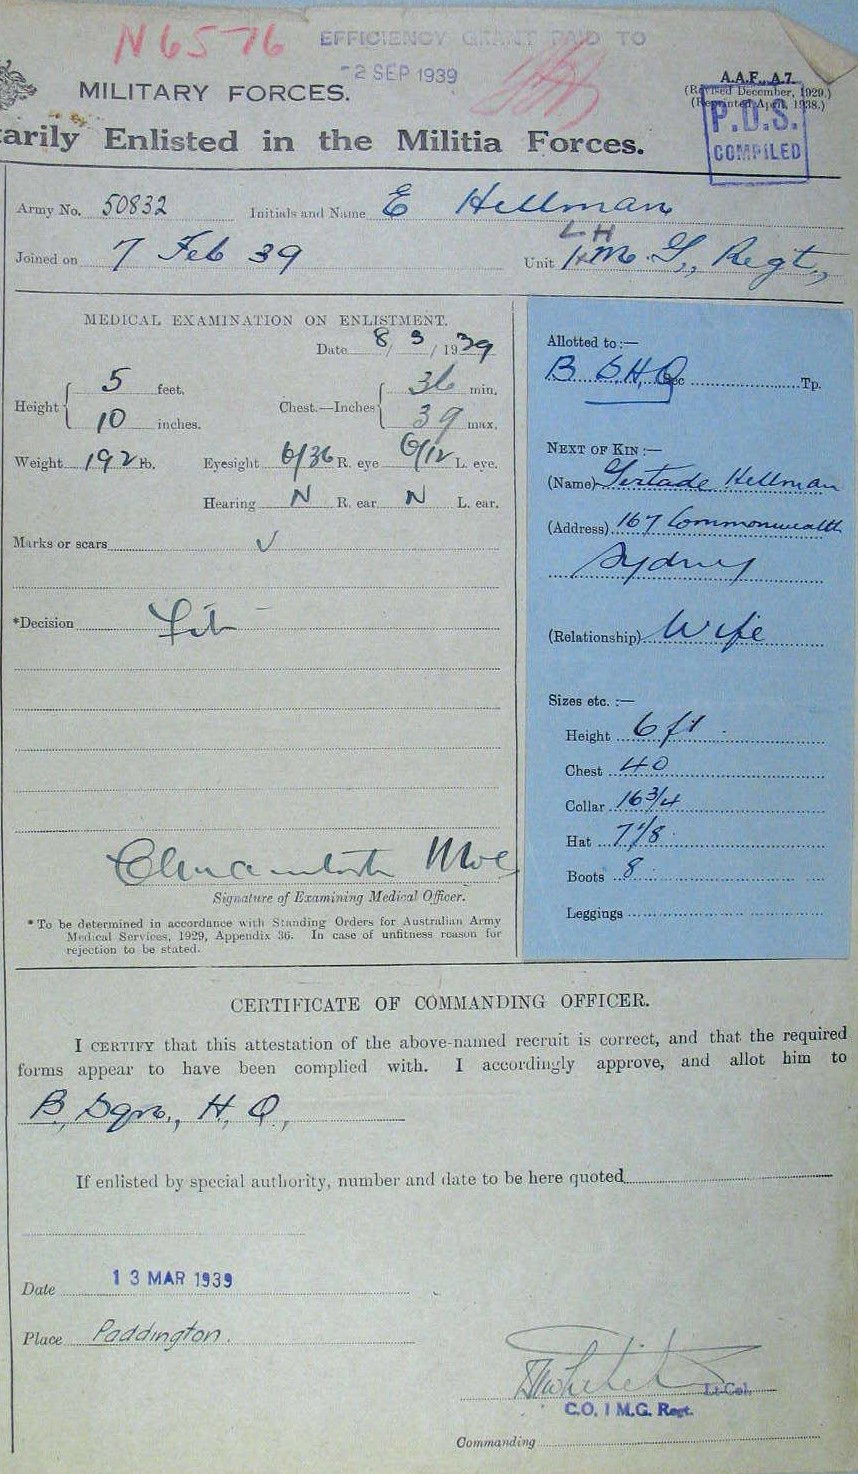 N6576 EFFICIENCY GRANT PAID TO
-2 SEP 1939
MILITARY FORCES.
A.A.F. A.7.
(Revised December, 1929.)
(Reprinted April, 1938.)
P.D.S.
COMPILED
tarily Enlisted in the Militia Forces.
Army No. 50832 Initials and Name E Hellman
Joined on 7 Feb 39 Unit 1 L H M. G., Regt.,
MEDICAL EXAMINATION ON ENLISTMENT.
Date 8/3/1939
Height 5 feet. 10 inches. Chest.—Inches 36 min. 39 max.
Weight 192 lb. Eyesight 6/36 R. eye 6/12 L. eye.
Hearing N R. ear N L. ear.
Marks or scars ✓
*Decision Fit
Signature of Examining Medical Officer.
* To be determined in accordance with Standing Orders for Australian Army
Medical Services, 1929, Appendix 36. In case of unfitness reason for
rejection to be stated.
Allotted to:—
B S.H.Q Sec Tp.
NEXT OF KIN:—
(Name) Gertade Hellman
(Address) 167 Commonwealth
Sydney
(Relationship) Wife
Sizes etc. :—
Height 6 ft
Chest 40
Collar 16 3/4
Hat 7 1/8
Boots 8
Leggings
CERTIFICATE OF COMMANDING OFFICER.
I CERTIFY that this attestation of the above-named recruit is correct, and that the required
forms appear to have been complied with. I accordingly approve, and allot him to
B, Sqn., H, Q,
If enlisted by special authority, number and date to be here quoted
Date 13 MAR 1939
Place Paddington.
Lt-Col.
C.O. 1 M.G. Regt.
Commanding